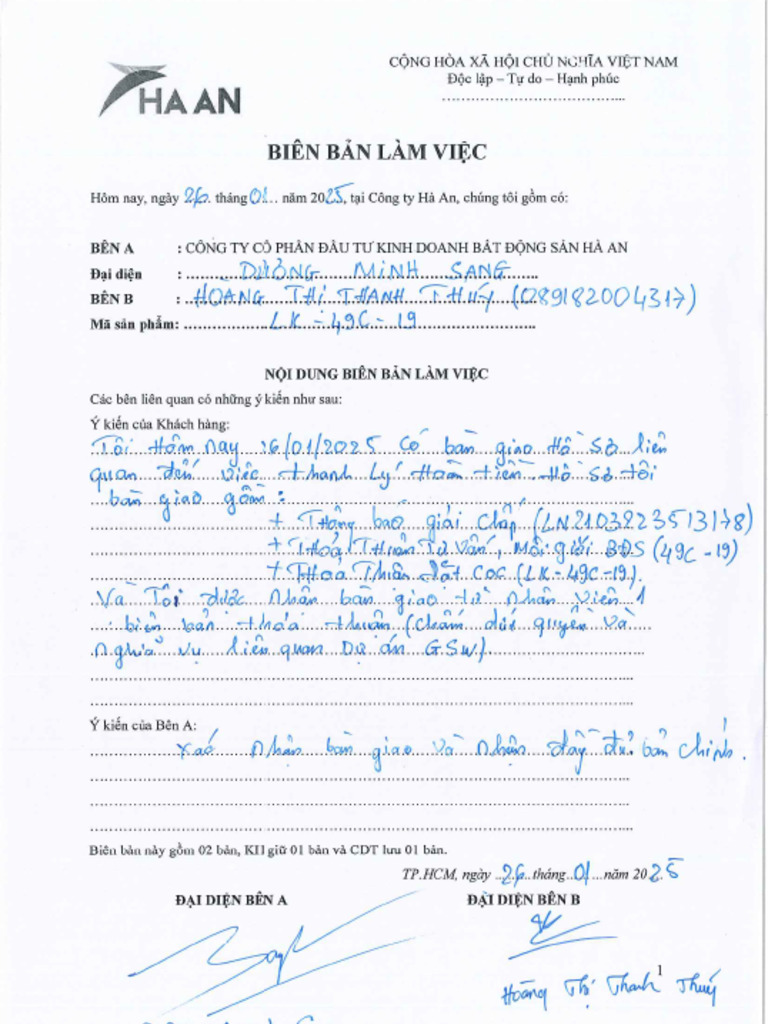 HA AN
CỘNG HÒA XÃ HỘI CHỦ NGHĨA VIỆT NAM
Độc lập – Tự do – Hạnh phúc
BIÊN BẢN LÀM VIỆC
Hôm nay, ngày 26 tháng 01 năm 2025, tại Công ty Hà An, chúng tôi gồm có:
BÊN A : CÔNG TY CỔ PHẦN ĐẦU TƯ KINH DOANH BẤT ĐỘNG SẢN HÀ AN
Đại diện : DƯƠNG MINH SANG
BÊN B : HOÀNG THỊ THANH THUÝ (089182004317)
Mã sản phẩm: LK - 49C - 19
NỘI DUNG BIÊN BẢN LÀM VIỆC
Các bên liên quan có những ý kiến như sau:
Ý kiến của Khách hàng:
Tôi Hôm nay 26/01/2025 có bàn giao Hồ Sơ liên
quan đến việc thanh Lý Hoàn tiền. Hồ Sơ tôi
bàn giao gồm:
+ Thông báo giải chấp (LN2103223513178)
+ Thoả Thuận Tư Vấn, Môi giới BĐS (49C -19)
+ Thoả Thuận đặt cọc (LK - 49C -19).
Và Tôi được nhận bàn giao từ nhân viên 1
biên bản thỏa thuận (chấm dứt quyền và
nghĩa vụ liên quan Dự án GSW)
Ý kiến của Bên A:
Xác nhận bàn giao và nhận đầy đủ bản chính.
Biên bản này gồm 02 bản, KH giữ 01 bản và CDT lưu 01 bản.
TP.HCM, ngày 26 tháng 01 năm 2025
ĐẠI DIỆN BÊN A ĐẠI DIỆN BÊN B
1
Hoàng Thị Thanh Thuý